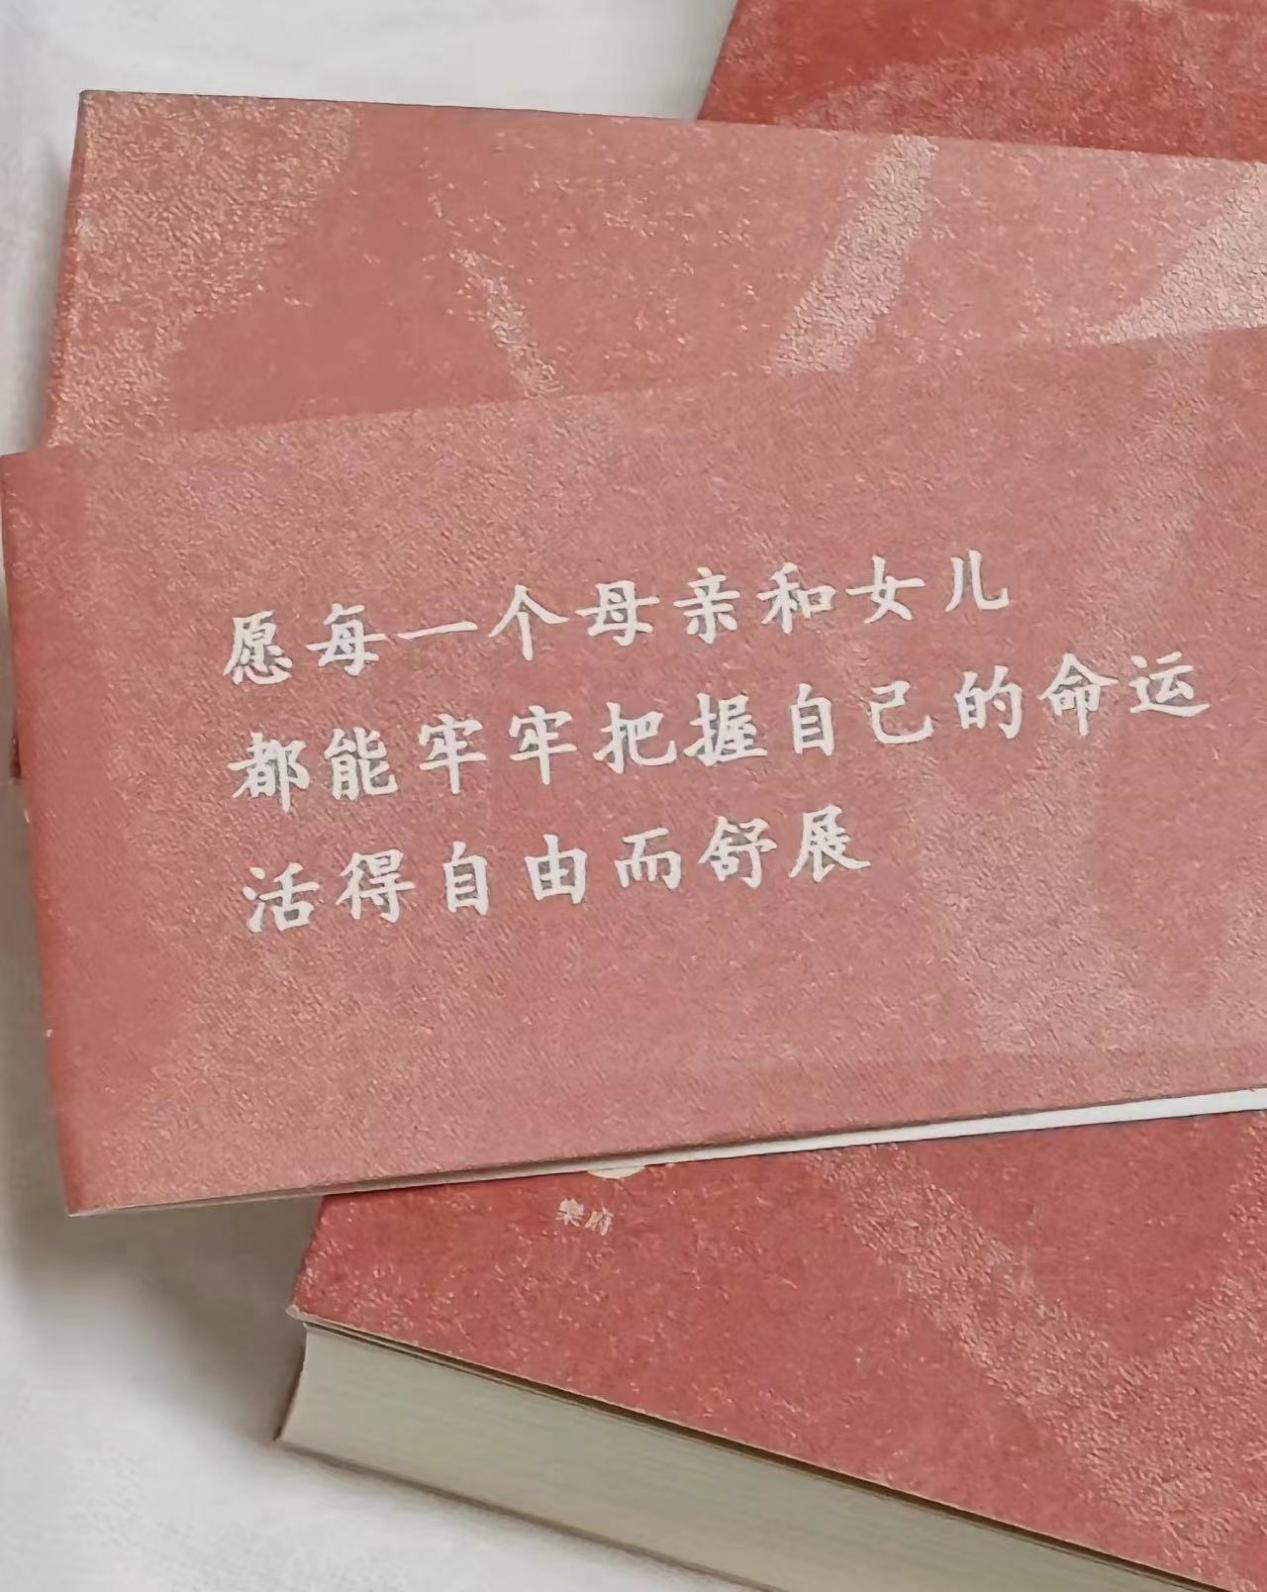 愿每一个母亲和女儿
都能牢牢把握自己的命运
活得自由而舒展
樂府